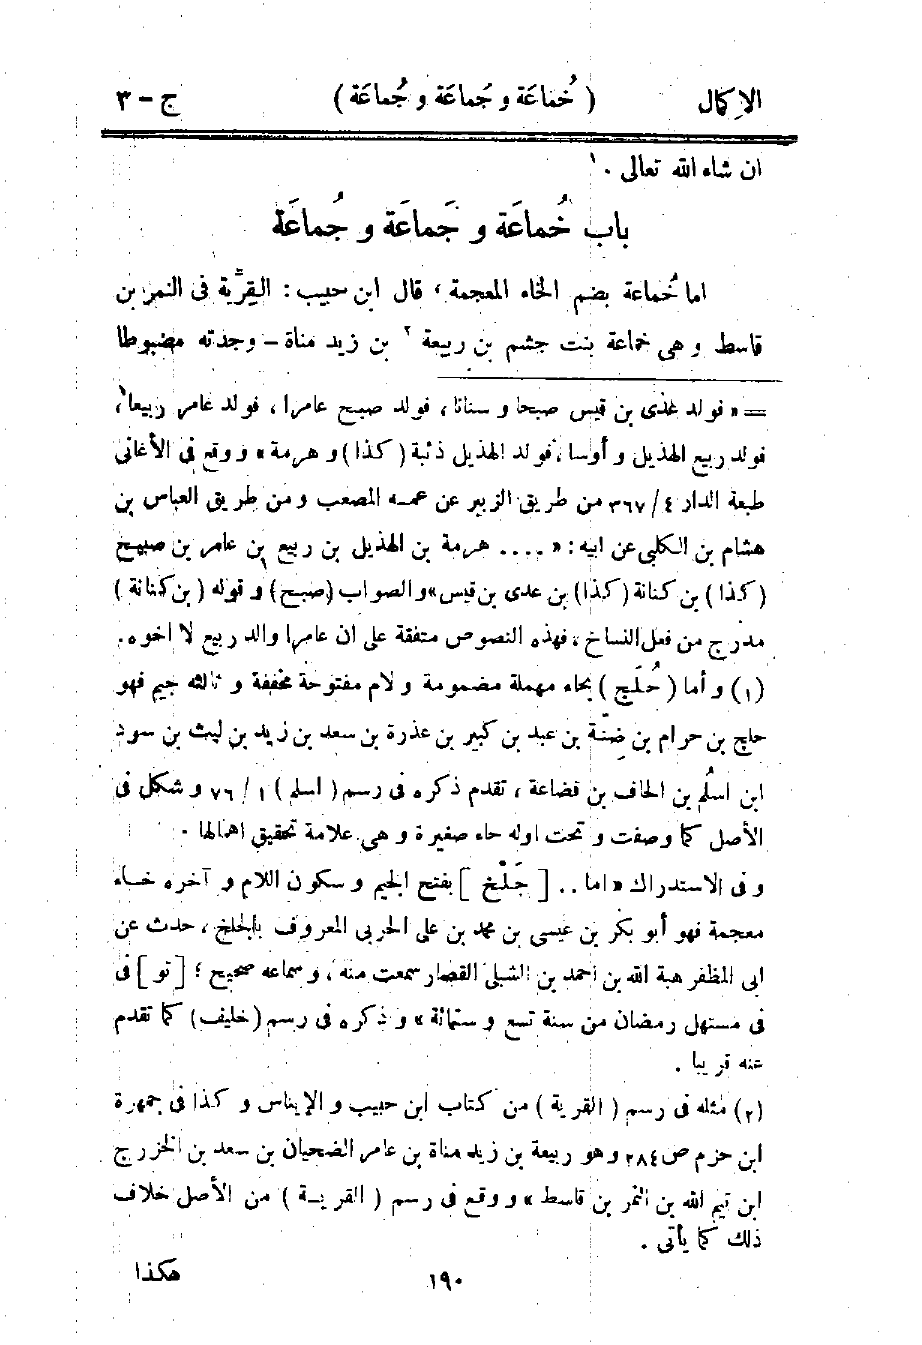 الإكمال ( خُماعَة و جَماعَة و جُماعَة ) ج – ٣
ان شاء الله تعالى ١.
باب خُماعَة و جَماعَة و جُماعَة
اما خُماعة بضم الخاء المعجمة ، قال ابن حبيب : القِرِّيّة فى النمر بن
قاسط و هى خماعة بنت جشم بن ربيعة ٢ بن زيد مناة – وجدته مضبوطا
= « فولد غذى بن قيس صبحا و سنانا ، فولد صبح عامرا ، فولد عامر ربيعا ،
فولد ربيع الهذيل و أوسا ، فولد الهذيل ذئبة ( كذا ) و هرمة » و وقع فى الأغانى
طبعة الدار ٤ / ٣٦٧ من طريق الزبير عن عمه المصعب و من طريق العباس بن
هشام بن الكلبى عن ابيه : « .... هرمة بن الهذيل بن ربيع بن عامر بن صبيح
( كذا ) بن كنانة ( كذا ) بن عدى بن قيس » و الصواب ( صبح ) و قوله ( بن كنانة )
مدرج من فعل النساخ ، فهذه النصوص متفقة على ان عامرا والد ربيع لا اخوه .
(١) و أما ( حُلَج ) بحاء مهملة مضمومة و لام مفتوحة مخففة و ثالثه جيم فهو
حلج بن حرام بن ضِنّة بن عبد بن كبير بن عذرة بن سعد بن زيد بن ليث بن سود
ابن اسلُم بن الحاف بن قضاعة ، تقدم ذكره فى رسم ( اسلم ) ١ / ٧٦ و شكل فى
الأصل كما وصفت و تحت اوله حاء صغيرة و هى علامة تحقيق اهمالها .
و فى الاستدراك « اما .. [ جَلْخ ] بفتح الجيم و سكون اللام و آخره خاء
معجمة فهو أبو بكر بن عيسى بن محمد بن على الحربى المعروف بالجلخ ، حدث عن
ابى المظفر هبة الله بن احمد بن الشبلى القصار سمعت منه ، و سماعه صحيح ؛ [ تو ] فى
فى مستهل رمضان من سنة تسع و ستمائة » و ذكره فى رسم ( خليف ) كما تقدم
عنه قريبا .
(٢) مثله فى رسم ( القرية ) من كتاب ابن حبيب و الإيناس و كذا فى جمهرة
ابن حزم ص ٢٨٤ و هو ربيعة بن زيد مناة بن عامر الضحيان بن سعد بن الخزرج
ابن تيم الله بن النمر بن قاسط » و وقع فى رسم ( القرية ) من الأصل خلاف
ذلك كما يأتى .
١٩٠ هكذا